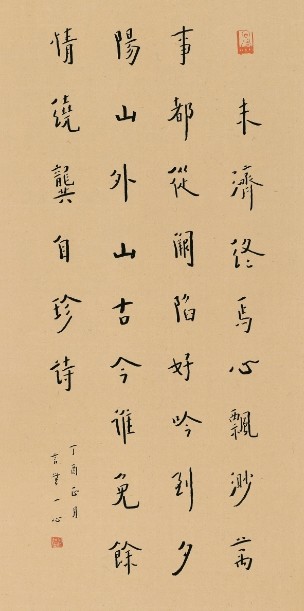 未濟終焉心飄渺萬
事都從闕陷好吟到夕
陽山外山古今誰免餘
情繞龔自珍詩
丁酉正月
一心